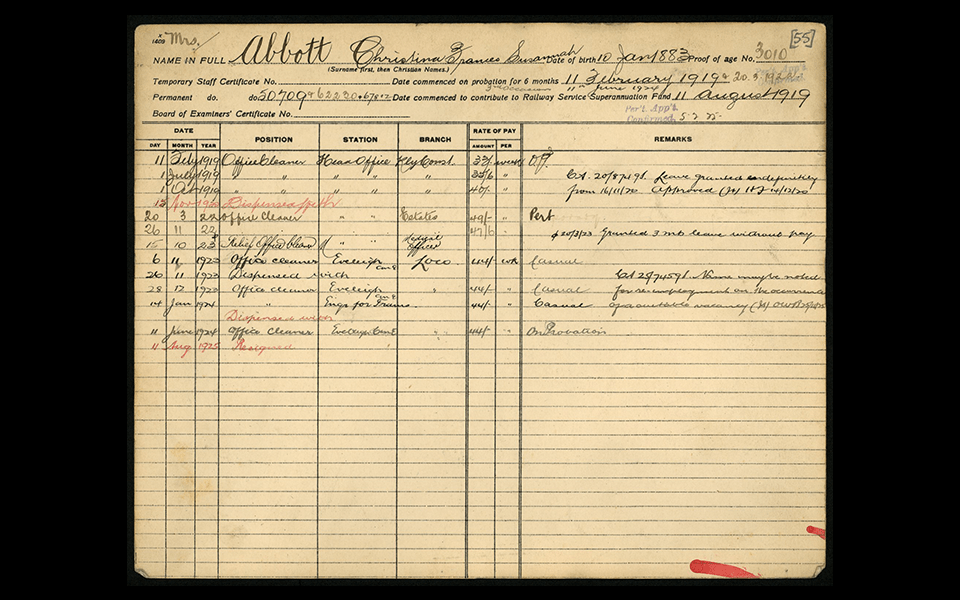 Mrs/ [55]
NAME IN FULL Abbott Christina Frances Susannah Date of birth 10 Jan 1883 Proof of age No. 3010
(Surname first, then Christian Names.)
Temporary Staff Certificate No. Date commenced on probation for 6 months 11 February 1919 & 20.3.1922
3rd occasion 11th June 1924
Permanent do. do 50709 & 62230 & 67872 Date commenced to contribute to Railway Service Superannuation Fund 11 August 1919
Board of Examiners' Certificate No. Per't. App't. Confirmed
DATE POSITION STATION BRANCH RATE OF PAY REMARKS
DAY MONTH YEAR AMOUNT PER
11 Feby 1919 Office Cleaner Head Office Rly Const. week
1 July 1919 " " " "
Leave granted indefinitely
1 Oct 1919 " " " 40/- "
from 16/11/20 approved
Nov 1920 Dispensed with
20 3 22 Office Cleaner " " Estates 49/- " Pert
26 11 22 47/6 "
20/3/23 Granted 3 mth leave without pay
15 10 23 Relief Office Cleaner " "
6 11 1923 Office Cleaner Eveleigh Loco. 44/- wk Casual
26 11 1923 Dispensed with
Name may be noted
28 12 1923 Office Cleaner Eveleigh 44/- " Casual
for re-employment on the occurrence
14 Jan 1924 " Engs for Frame 44/- " Casual
of a suitable vacancy
Dispensed with
11 June 1924 Office Cleaner Eveleigh " " 44/- " On Probation
11 Aug 1925 Resigned "